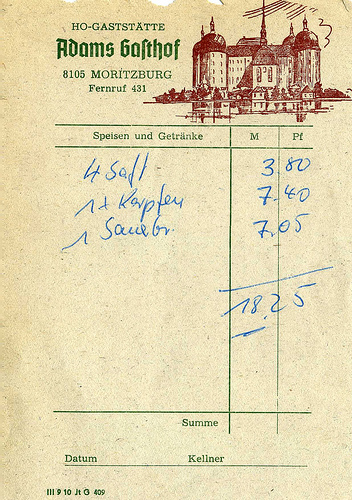 HO-GASTSTÄTTE
Adams Gasthof
8105 MORITZBURG
Fernruf 431
Speisen und Getränke M Pf
4 Saft 3.80
1x Karpfen 7.40
1 Sauerbr. 7.05
18.25
Summe
Datum Kellner
III 9 10 Jt G 409